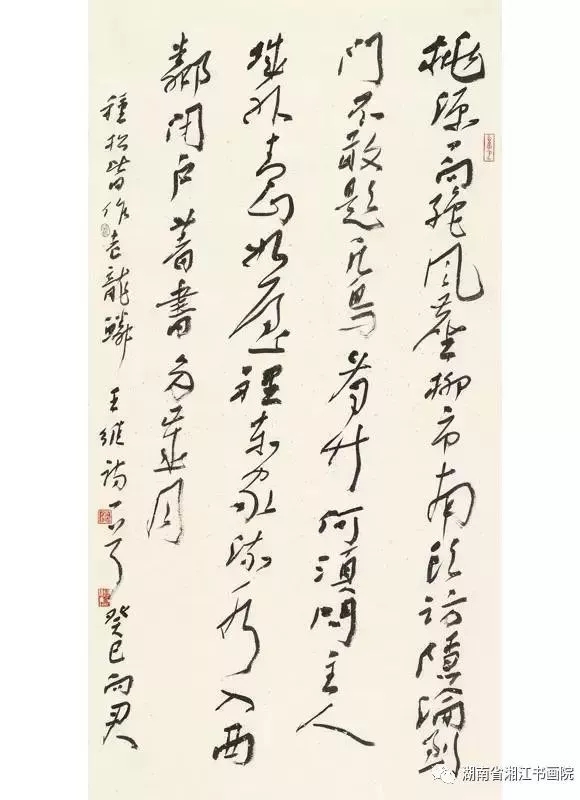 桃源一向絕風塵柳市南頭訪隱淪到
門不敢題凡鳥看竹何須問主人
城外青山如屋裡東家流水入西
鄰閉戶著書多歲月
種松皆作老龍鱗 王維詩一首 癸巳雨君
湖南省湘江书画院